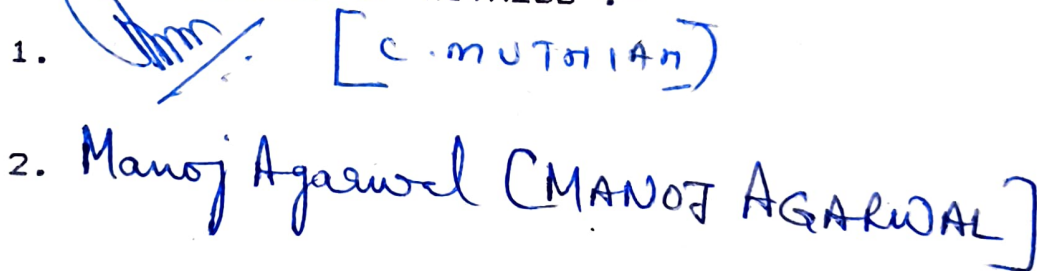 1. [C. MUTHIAH)
2. Manoj Agarwal [MANOJ AGARWAL]